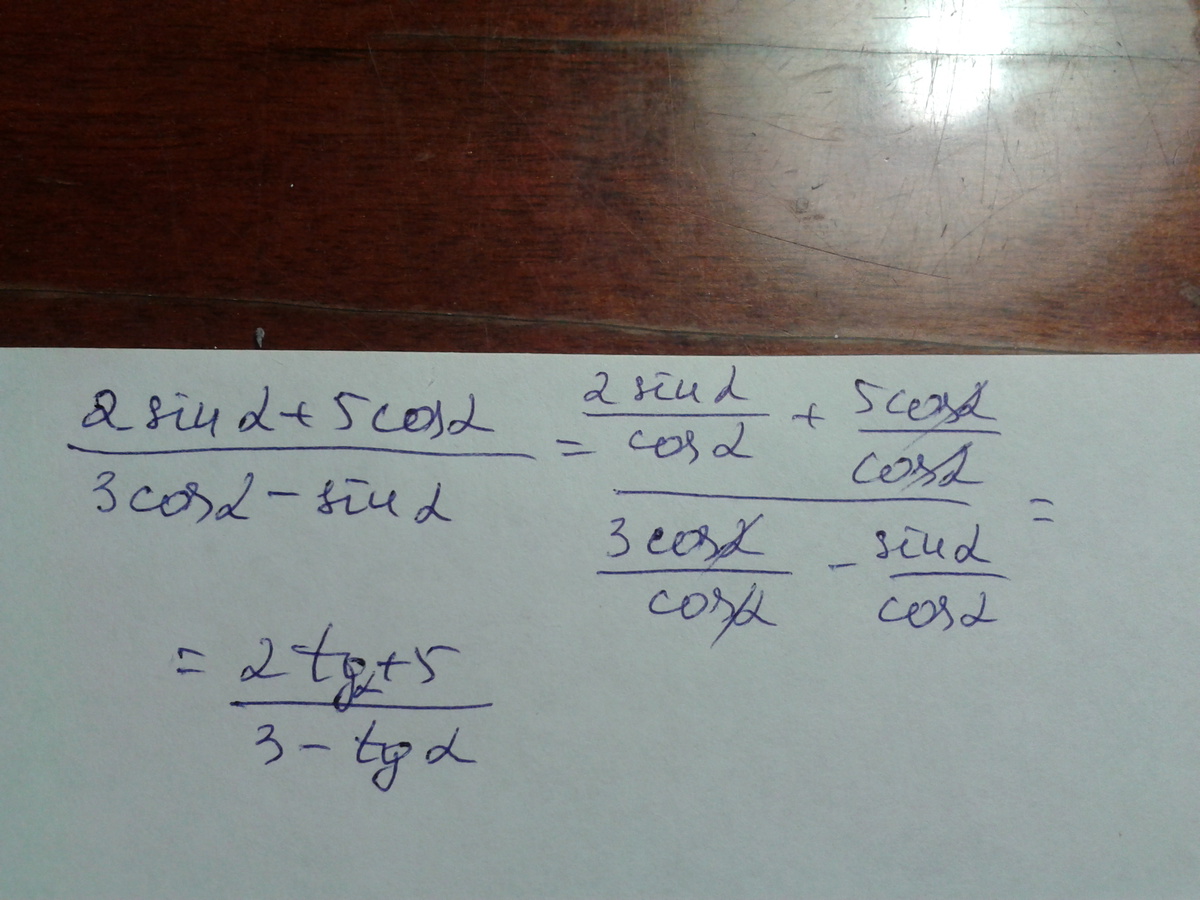 2 sin α + 5 cos α / 3 cos α − sin α = 2 sin α / cos α + 5 cos α / cos α / 3 cos α / cos α − sin α / cos α =
= 2 tg α + 5 / 3 − tg α